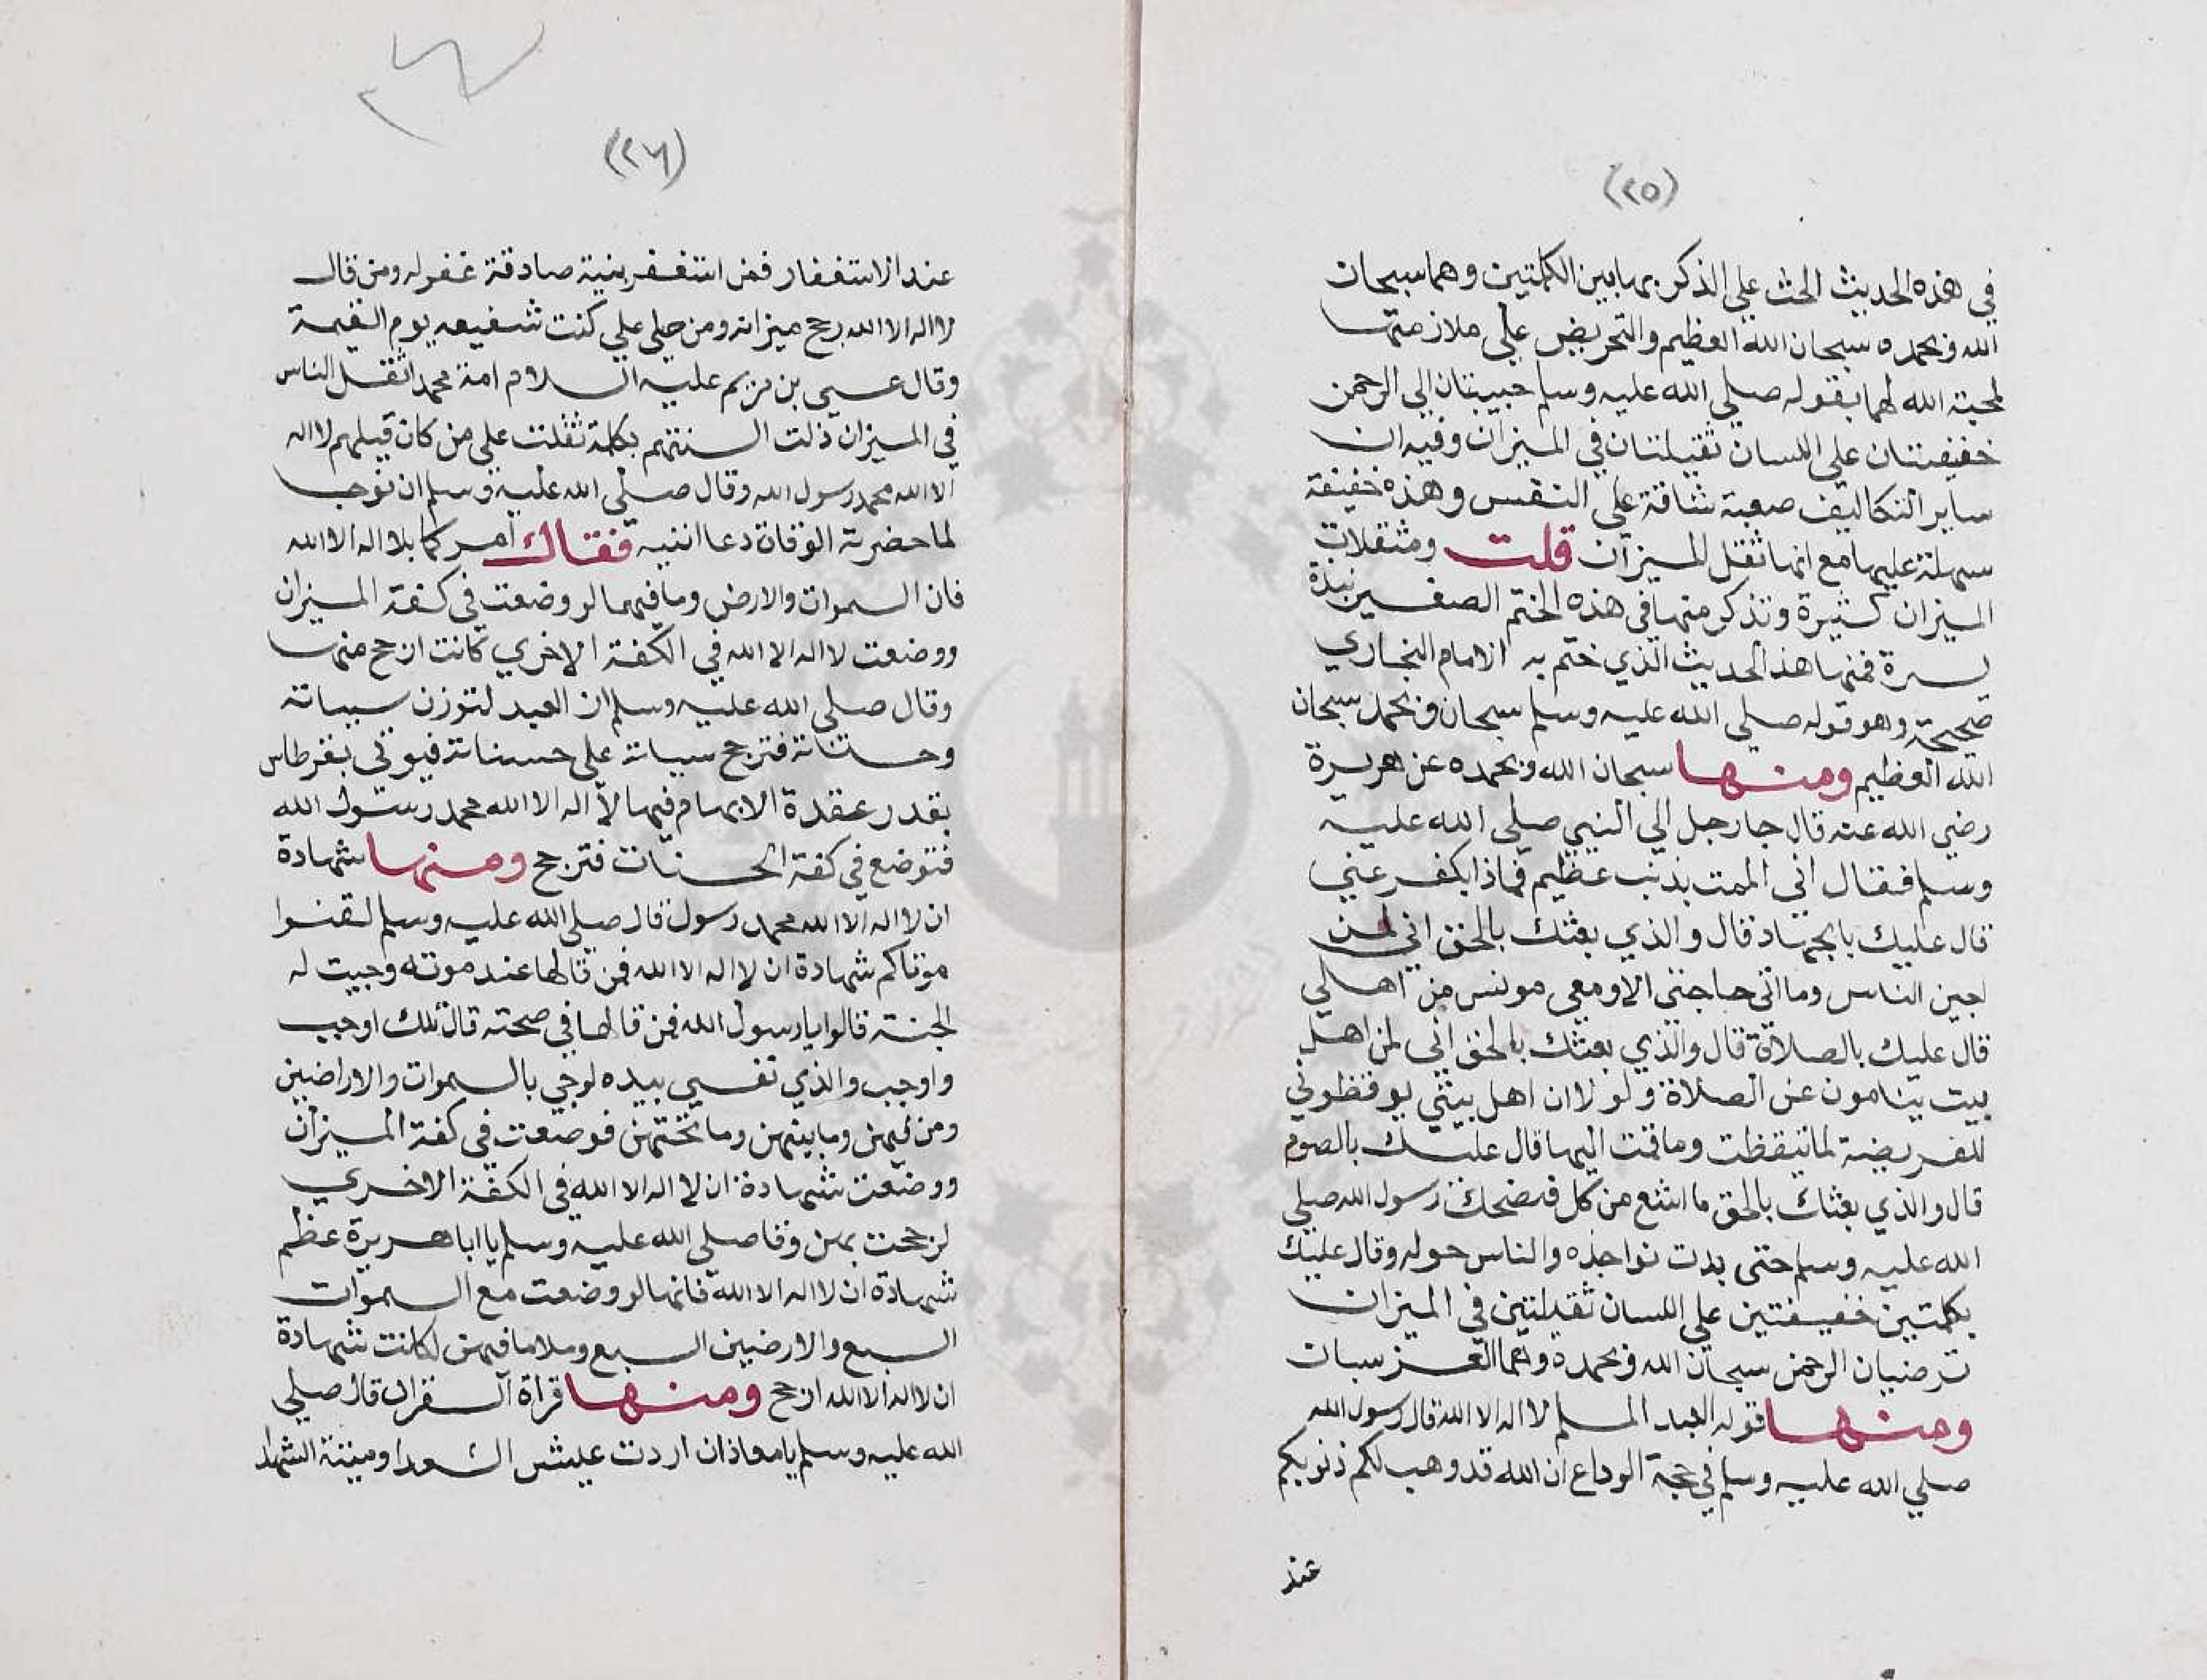 (٢٥)
في هذه الحديث الحث علي الذكر بهابين الكلمتين وهما سبحان
الله وبحمده سبحان الله العظيم والتحريض علي ملازمتها
لمحبة الله لهما بقوله صلي الله عليه وسلم حبيبتان الي الرحمن
خفيفتان علي اللسان ثقيلتان في الميزان وفيه ان
ساير التكاليف صعبة شاقة علي النفس وهذه خفيفة
سهلة عليها مع انها تثقل الميزان قلت ومثقلات
الميزان كثيرة ونذكر منها في هذه الختم الصغير نبذة
يسيرة فمنها هذ الحديث الذي ختم به الامام البخاري
صحيحة وهو قوله صلي الله عليه وسلم سبحان وبحمد سبحان
الله العظيم ومنها سبحان الله وبحمده عن هريرة
رضي الله عنه قال جا رجل الي النبي صلي الله عليه
وسلم فقال اني الممت بذنب عظيم فماذا يكفر عني
قال عليك بالجهاد قال والذي بعثك بالحق اني لمن
اجبن الناس وما اتي حاجتي الا ومعي مونس من اهلي
قال عليك بالصلاة قال والذي بعثك بالحق اني لمن اهل
بيت ينامون عن الصلاة ولولا ان اهل بيتي يوقظوني
للفريضة لما تيقظت وما قمت اليها قال عليك بالصوم
قال والذي بعثك بالحق ما اشبع من كل فضحك رسول الله صلي
الله عليه وسلم حتي بدت نواجذه والناس حوله وقال عليك
بكلمتين خفيفتين علي اللسان ثقيلتين في الميزان
ترضيان الرحمن سبحان الله وبحمده وهما
ومنها قوله العبد المسلم لا اله الا الله قال رسول الله
صلي الله عليه وسلم في حجة الوداع ان الله قد وهب لكم ذنوبكم
عند
(٢٦)
عند الاستغفار فمن استغفر بنية صادقة غفر له ومن قال
لا اله الا الله رجح ميزانه ومن صلي علي كنت شفيعه يوم القيمة
وقال عيسي بن مريم عليه السلام امة محمد اثقل الناس
في الميزان ذلت السنتهم بكلمة ثقلت علي من كان قبلهم لا اله
الا الله محمد رسول الله وقال صلي الله عليه وسلم ان نوحب
لما حضرته الوفاة دعا ابنيه فقال امركما بلا اله الا الله
فان السموات والارض وما فيهما لو وضعت في كفة الميزان
ووضعت لا اله الا الله في الكفة الاخري كانت ارجح منها
وقال صلي الله عليه وسلم ان العبد لتوزن سيياته
وحسناته فترجح سيياته علي حسناته فيوتي بقرطاس
بقدر عقدة الابهام فيها لا اله الا الله محمد رسول الله
فتوضع في كفة الحسنات فترجح ومنها شهادة
ان لا اله الا الله محمد رسول قال صلي الله عليه وسلم لقنوا
موتاكم شهادة ان لا اله الا الله فمن قالها عند موته وجبت له
الجنة قالوا يا رسول الله فمن قالها في صحته قال تلك اوجب
واوجب والذي نفسي بيده لو جي بالسموات والاراضين
ومن فيهن وما بينهن وما تحتهن فوضعت في كفة الميزان
ووضعت شهادة ان لا اله الا الله في الكفة الاخري
لرجحت بهن وقا صلي الله عليه وسلم يا ابا هريرة عظم
شهادة ان لا اله الا الله فانها لو وضعت مع السموات
السبع والارضين السبع وملا ما فيهن لكانت شهادة
ان لا اله الا الله ارجح ومنها قراة القران قال صلي
الله عليه وسلم يا معاذ ان اردت عيش السعدا وميتة الشهدا